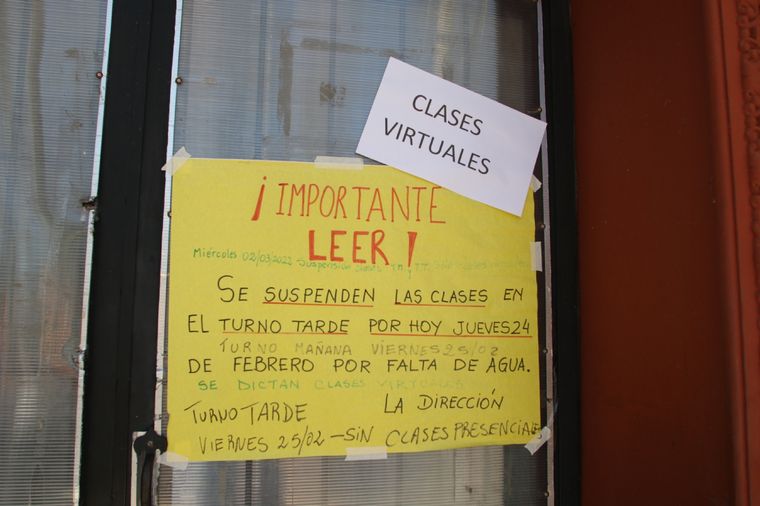 CLASES
VIRTUALES
¡IMPORTANTE
LEER!
Miércoles 02/03/2022 - Suspensión clases TM y TT.
SE SUSPENDEN LAS CLASES EN
EL TURNO TARDE POR HOY JUEVES 24
TURNO MAÑANA VIERNES 25/02
DE FEBRERO POR FALTA DE AGUA.
SE DICTAN CLASES VIRTUALES
TURNO TARDE LA DIRECCIÓN
VIERNES 25/02 - SIN CLASES PRESENCIALE